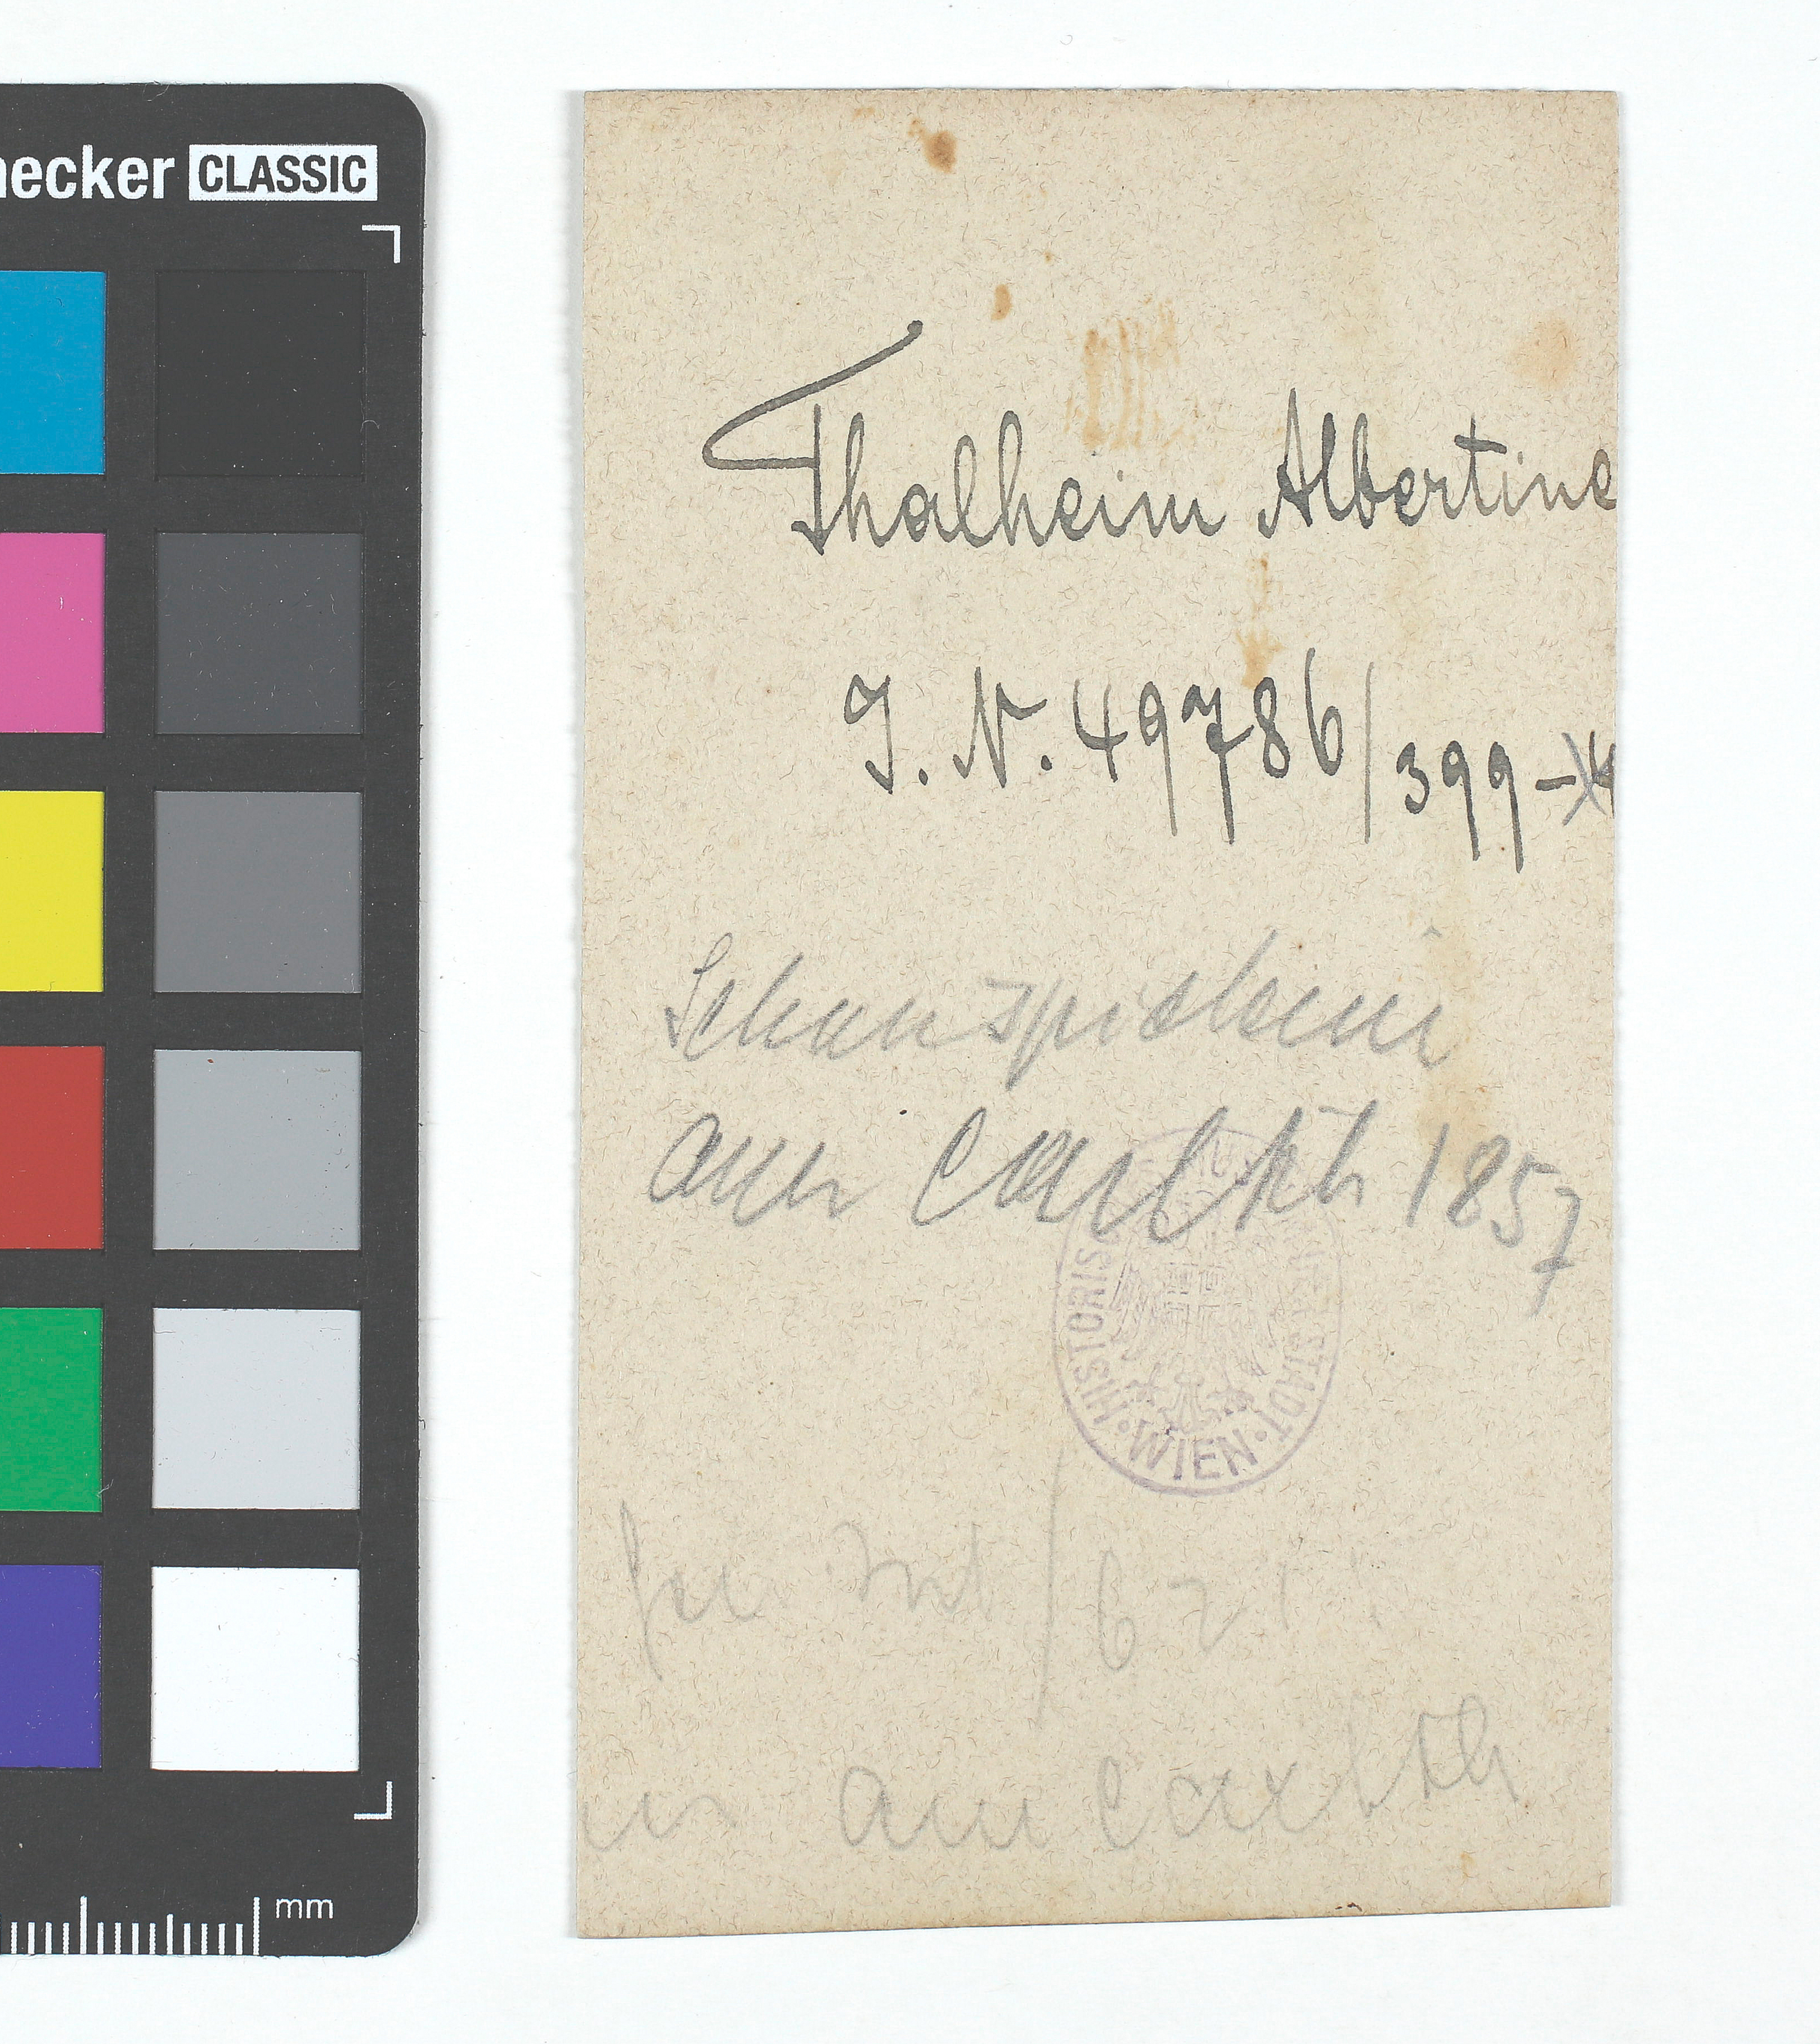 hecker CLASSIC
Thalheim Albertine
J. N. 49786/399-
Schauspielerin
am Carl th 1857
HISTORIS STADT
WIEN
/621
am Carlth
mm